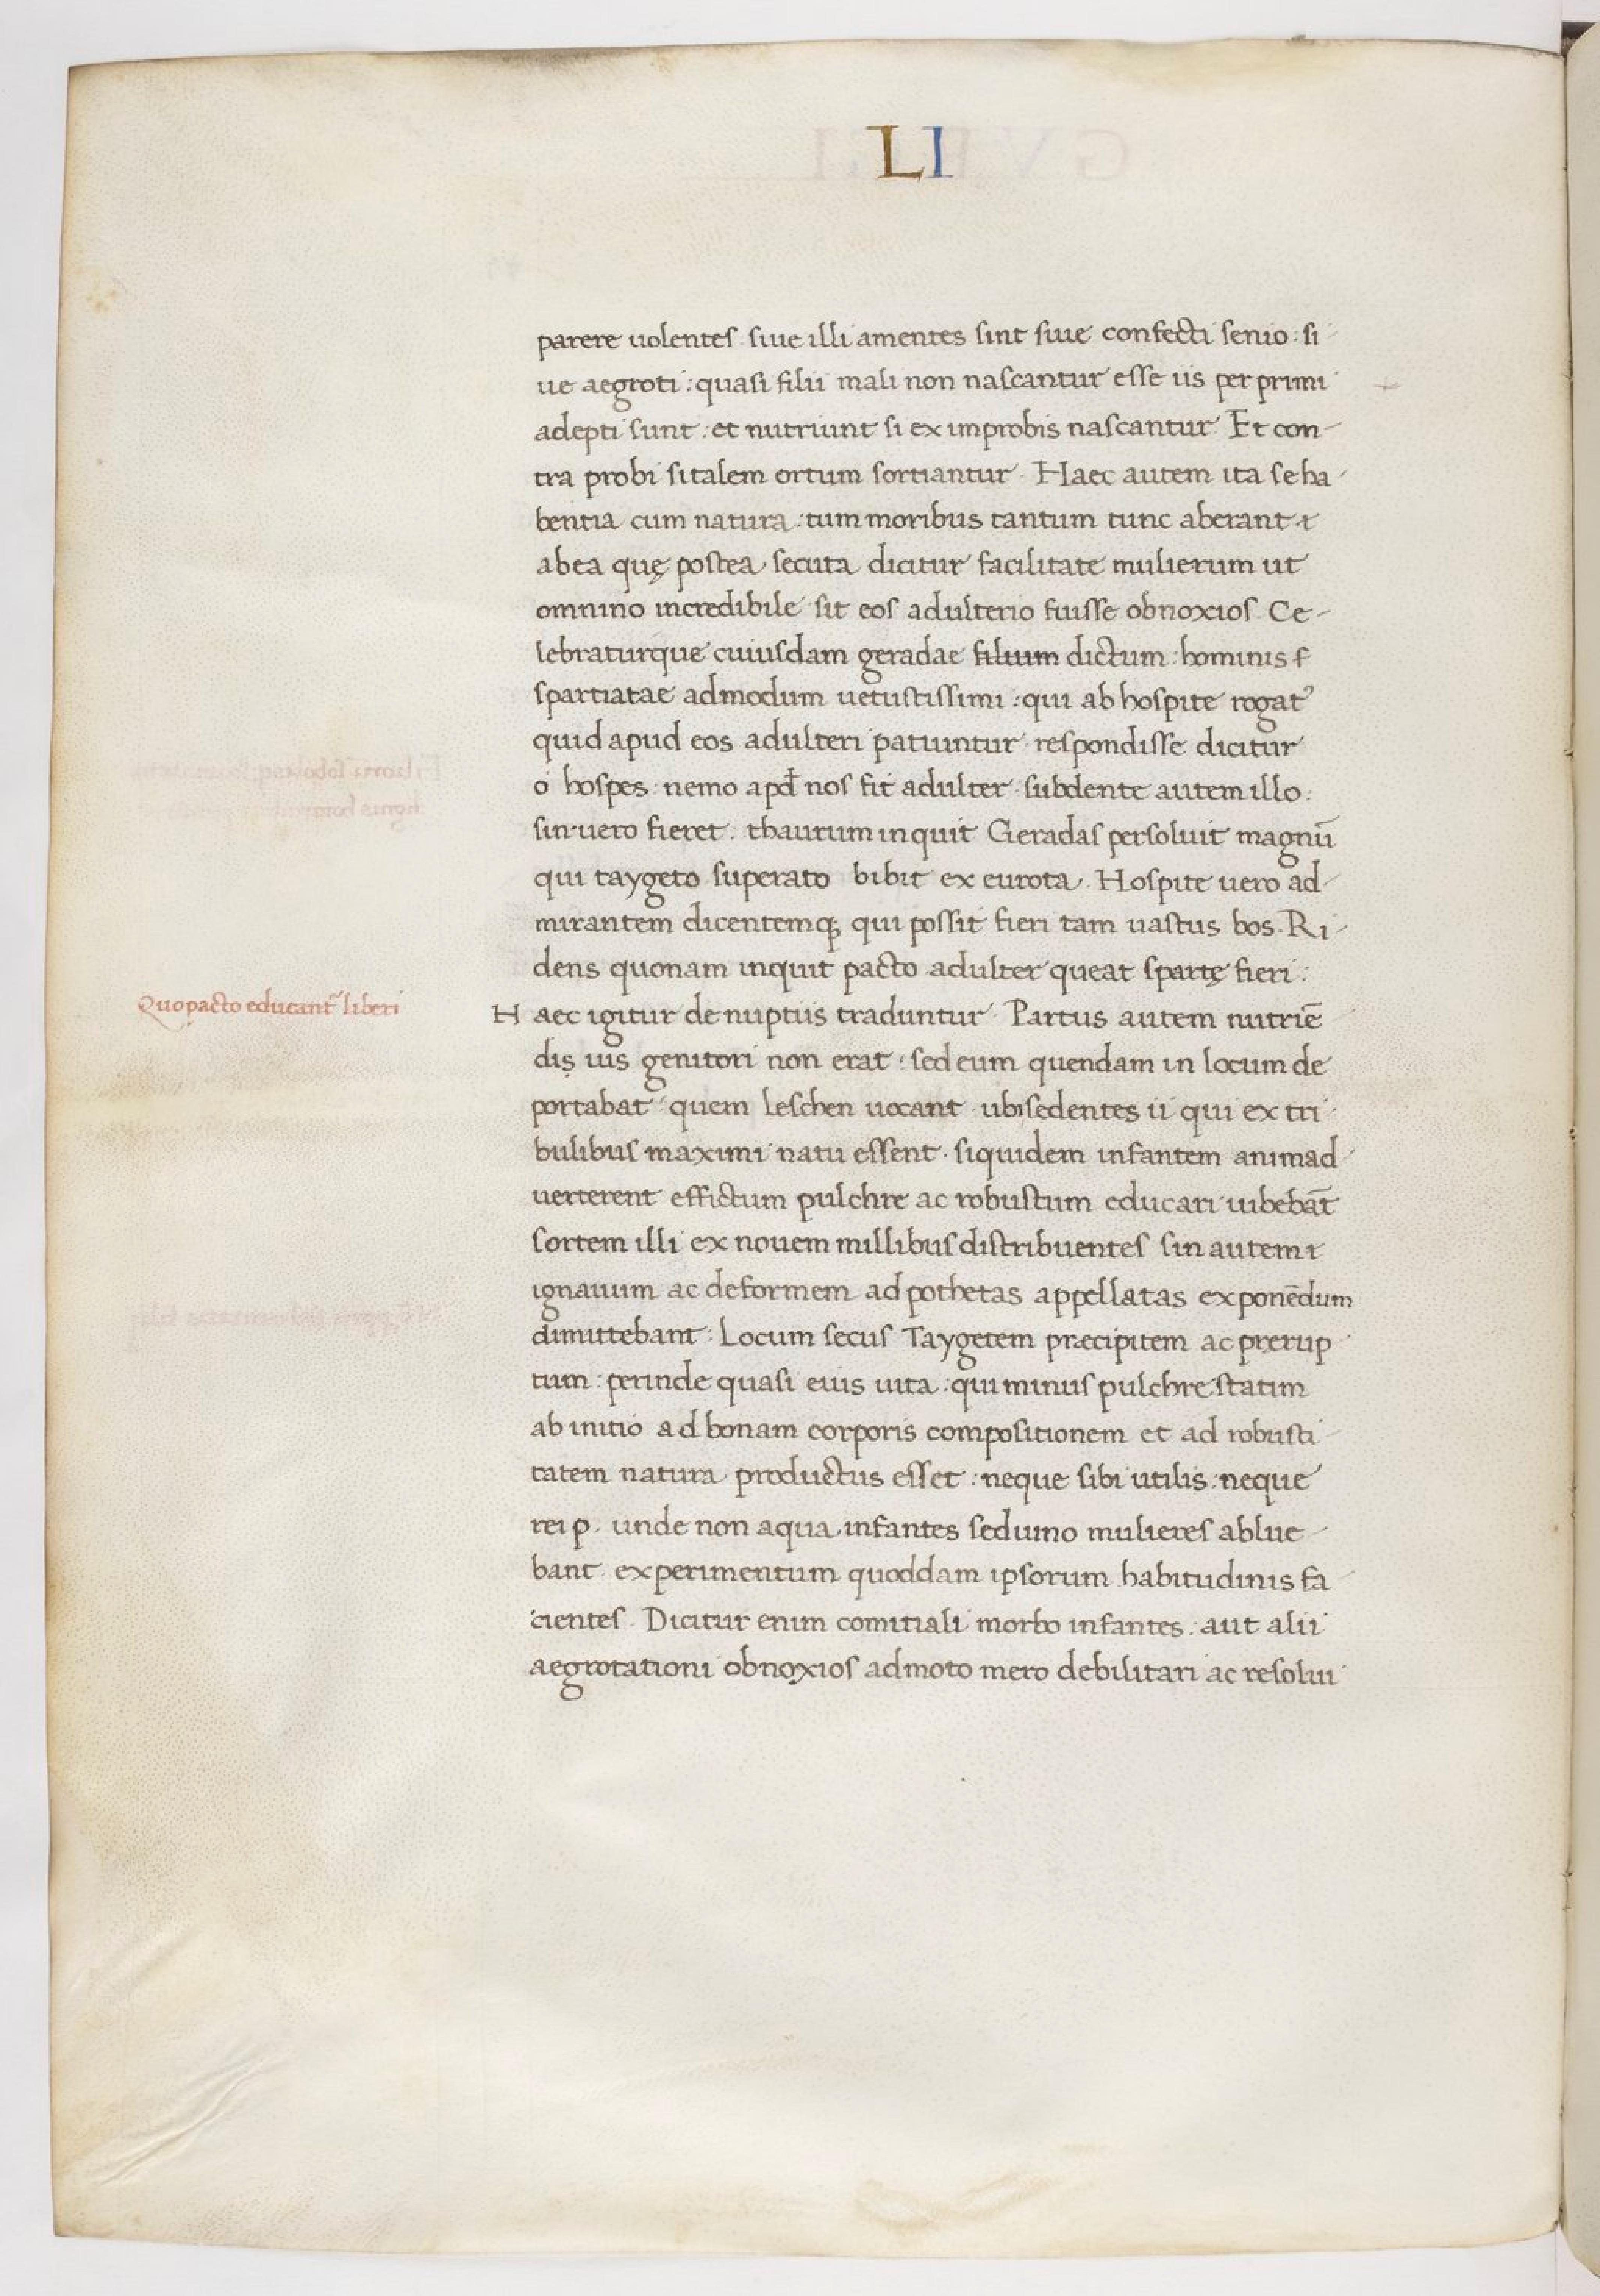 LI
parere uolentes. siue illi amentes sint siue confecti senio: si-
ue aegroti: quasi filii mali non nascantur esse iis per primi
adepti sunt: et nutriunt si ex improbis nascantur. Et con-
tra probi si talem ortum sortiantur. Haec autem ita se ha-
bentia cum natura: tum moribus tantum tunc aberant
ab ea quę postea secuta dicitur facilitate mulierum ut
omnino incredibile sit eos adulterio fuisse obnoxios. Ce-
lebraturque cuiusdam geradae filium dictum: hominis
spartiatae admodum uetustissimi: qui ab hospite rogat᾽
quid apud eos adulteri patiuntur respondisse dicitur
o hospes: nemo apđ nos fit adulter. subdente autem illo:
sin uero fieret: thaurum inquit Geradas persoluit magnū
qui taygeto superato bibit ex eurota. Hospite uero ad-
mirantem dicentemq; qui possit fieri tam uastus bos. Ri-
dens quonam inquit pacto adulter queat spartę fieri:
Quo pacto educant᷑ liberi
Haec igitur de nuptiis traduntur. Partus autem nutriē
dis ius genitori non erat: sed eum quendam in locum de
portabat quem leschen uocant ubi sedentes ii qui ex tri-
bulibus maximi natu essent. siquidem infantem animad-
uerterent effictum pulchre ac robustum educari iubebāt
sortem illi ex nouem millibus distribuentes sin autem
ignauum ac deformem ad pothetas appellatas exponēdum
dimittebant: Locum secus Taygetem præcipitem ac pręrup-
tum: perinde quasi eius uita: qui minus pulchre statim
ab initio ad bonam corporis compositionem et ad robusti-
tatem natura productus esset: neque sibi utilis: neque
rei p. unde non aqua infantes sed uino mulieres ablue-
bant. experimentum quoddam ipsorum habitudinis fa-
cientes. Dicitur enim comitiali morbo infantes: aut alii
aegrotationi obnoxios admoto mero debilitari ac resolui